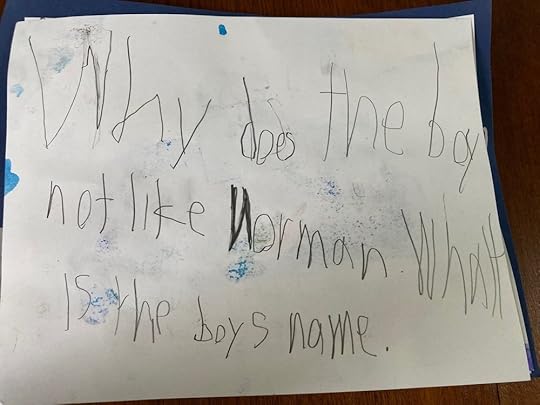 Why does the boy
not like Norman. What
Is the boys name.